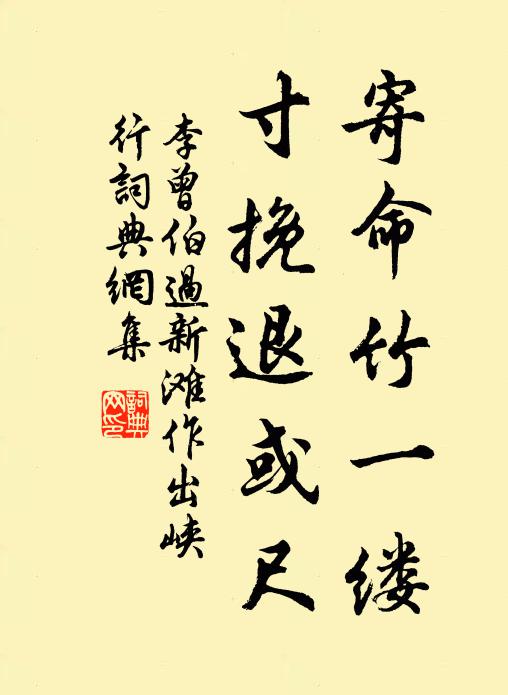 寄命竹一缕
寸挽退或尺
李曾伯過新滩作出峡
行詞典網集
詞典
网印